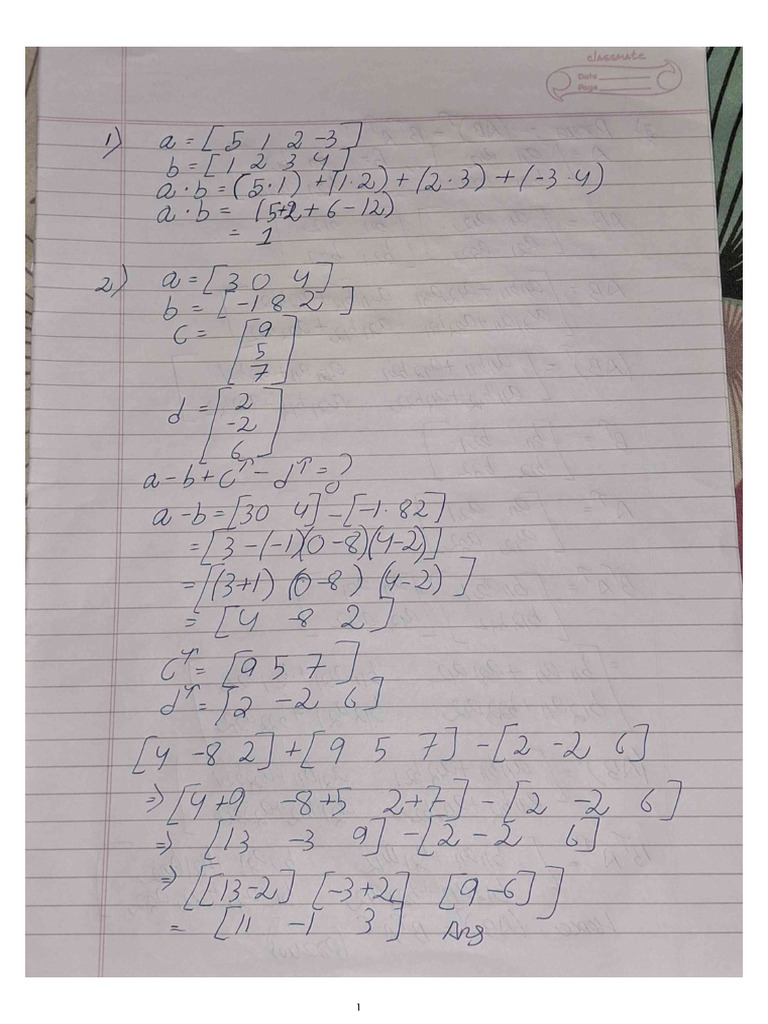 classmate
Date
Page
1) a = [5 1 2 -3]
b = [1 2 3 4]
a·b = (5·1) + (1·2) + (2·3) + (-3·4)
a·b = (5+2+6-12)
= 1
2) a = [3 0 4]
b = [-1 8 2]
c = [9
5
7]
d = [2
-2
6]
a-b+c^T-d^T=?
a-b = [30 4] - [-1·82]
= [3-(-1)(0-8)(4-2)]
= [(3+1) (0-8) (4-2)]
= [4 -8 2]
c^T = [9 5 7]
d^T = [2 -2 6]
[4 -8 2] + [9 5 7] - [2 -2 6]
⇒ [4+9 -8+5 2+7] - [2 -2 6]
⇒ [13 -3 9] - [2 -2 6]
⇒ [[13-2] [-3+2] [9-6]]
= [11 -1 3] Ans
1